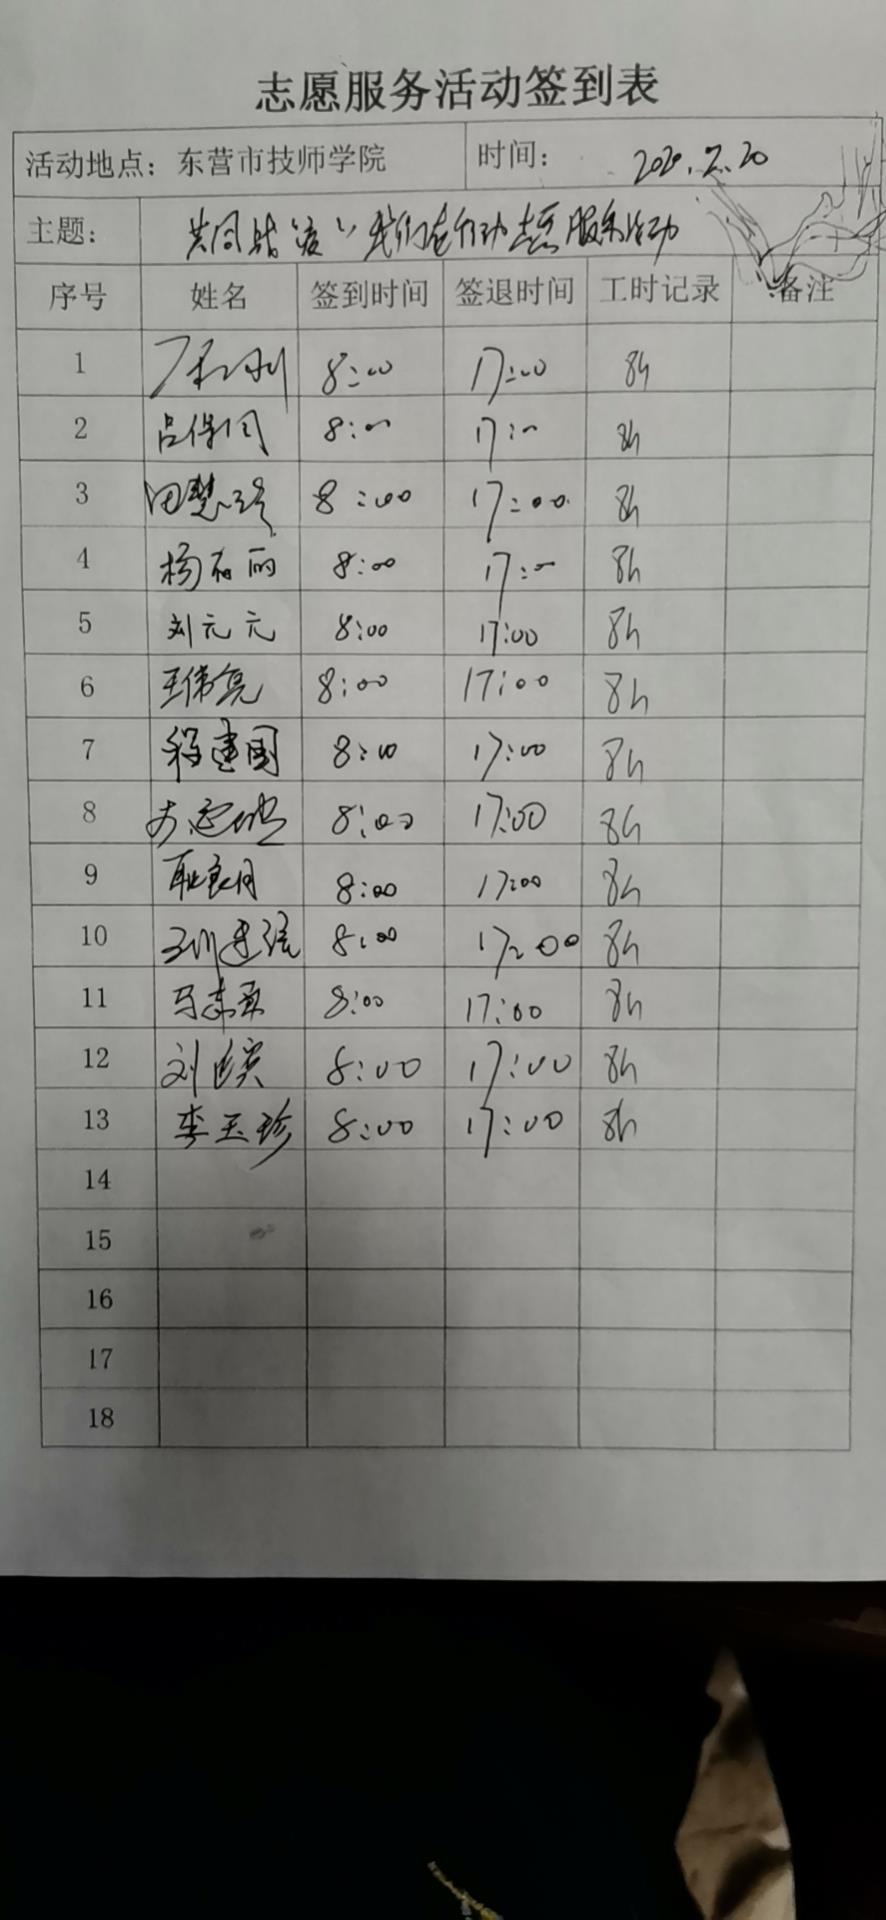 志愿服务活动签到表
活动地点：东营市技师学院 时间： 2020.2.20
主题： 共同战“疫”我们在行动志愿服务活动
序号 姓名 签到时间 签退时间 工时记录 备注
1 8:00 17:00 8h
2 吕保同 8:00 17:00 8h
3 田慧 8:00 17:00 8h
4 杨 丽 8:00 17:00 8h
5 刘元元 8:00 17:00 8h
6 王伟亮 8:00 17:00 8h
7 程建国 8:00 17:00 8h
8 8:00 17:00 8h
9 耿良月 8:00 17:00 8h
10 8:00 17:00 8h
11 马 8:00 17:00 8h
12 刘 8:00 17:00 8h
13 李玉珍 8:00 17:00 8h
14
15
16
17
18